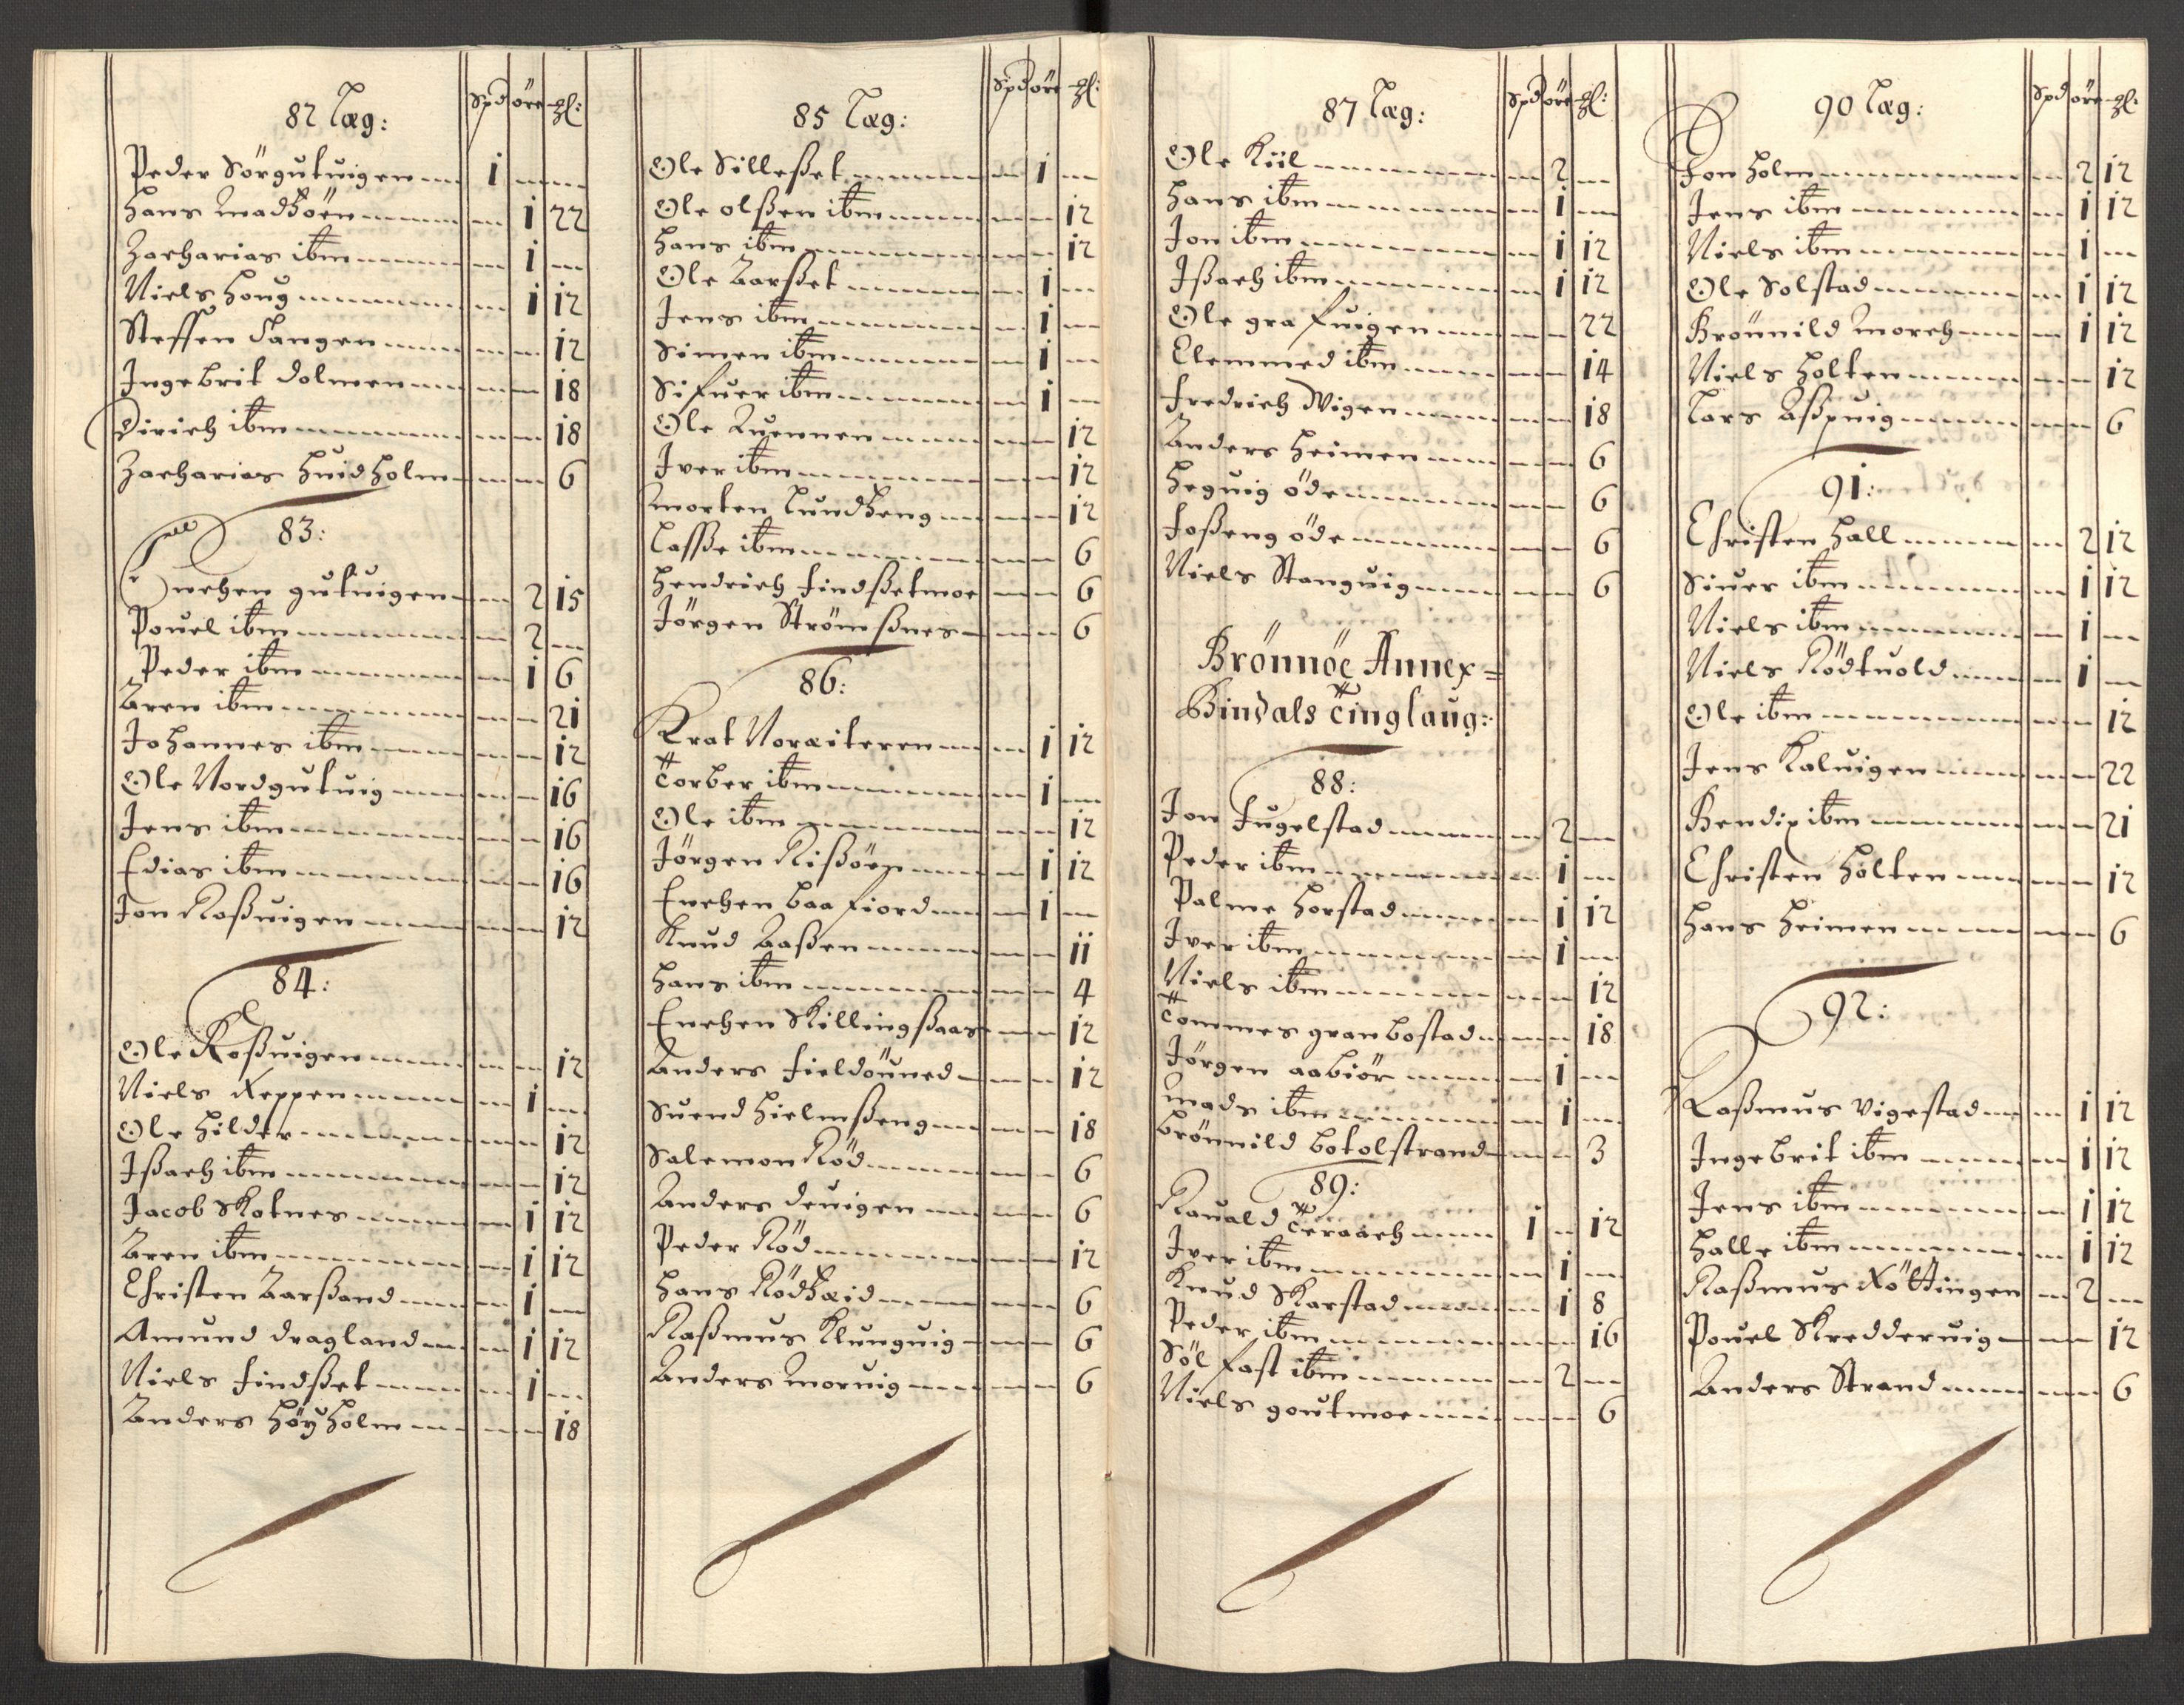 82 Læg: Spd öre ℳl:
Peder Sörgutuigen 1
Hans Madhörn 1 22
Zacharias ibm 1
Niels Houg 1 12
Steffen Tangen 12
Ingebrit Dolmen 18
Dirich ibm 18
Zacharias Huidholm 6
83:
Enchen gutuigen 2 15
Pouel ibm 2
Peder ibm 1 6
Aren ibm 21
Johannes ibm 12
Ole Nordgutuig 16
Jens ibm 16
Edias ibm 16
Jon Roßuigen 12
84:
Ole Roßuigen 12
Niels Reppen 1
Ole Hilder 12
Ißach ibm 12
Jacob Skotnes 1 12
Aren ibm 1 12
Christen Aarßand 1
Amund dragland 1 12
Niels Findßet 1
Anders Höyholm 18
85 Læg: Spd öre
Ole Silleßet 1
Ole olßen ibm 12
Hans ibm 12
Ole Aarßet 1
Jens ibm 1
Simen ibm 1
Sifuer ibm 1
Ole Quennen 12
Iver ibm 12
Morten Lundheng 12
Laßße ibm 6
Hendrich Findßetmoe 6
Jörgen Strömßnes 6
86:
Krat Noræiteren 1 12
Torber ibm 1
Ole ibm 12
Jörgen Rißöen 1 12
Enchen baafiord 1
Knud Aaßen 11
Hans ibm 4
Enchen Skillingßaas 12
Anders Fieldouned 12
Suend Hielmßeng 18
Salemon Röd 6
Anders deuigen 6
Peder Röd 12
Hans Rödhæid 6
Raßmus Klunguig 6
Anders Moruig 6
87 Læg: Spd öre
Ole Kiil 2
Hans ibm 1
Jon ibm 1 12
Ißach ibm 1 12
Ole grafuigen 22
Clemmed ibm 14
Fredrich Wigen 18
Anders Heimen 6
Heguig öde 6
Foßeng öde 6
Niels Stanguig 6
Brönnöe Annex =
Bindals Tinglaug:
88:
Jon Fugelstad 2
Peder ibm 1
Palme Horstad 1 12
Iver ibm 1
Niels ibm 12
Tommes granbostad 18
Jörgen aabiör 1
Mads ibm 1
Brönnild botolstrand 3
89:
Rauald Teraach 1 12
Iver ibm 1
Knud Skarstad 1 8
Peder ibm 16
Sölfast ibm 2
Niels goutmoe 6
90 Læg: Spd öre
Jon Holm 2 12
Jens ibm 1 12
Niels ibm 1
Ole Solstad 1 12
Brönnild Moreh 1 12
Niels Holten 12
Lars Aßpuig 6
91:
Christen Hall 2 12
Siuer ibm 1 12
Niels ibm 1
Niels Rödtuold 1
Ole ibm 12
Jens Kaluigen 22
Bendix ibm 21
Christen Holten 12
Hans Heimen 6
92:
Raßmus Vigestad 1 12
Ingebrit ibm 1 12
Jens ibm 1 12
Halle ibm 1 12
Raßmus Röttingen 2
Pouel Skredderuig 12
Anders Strand 6